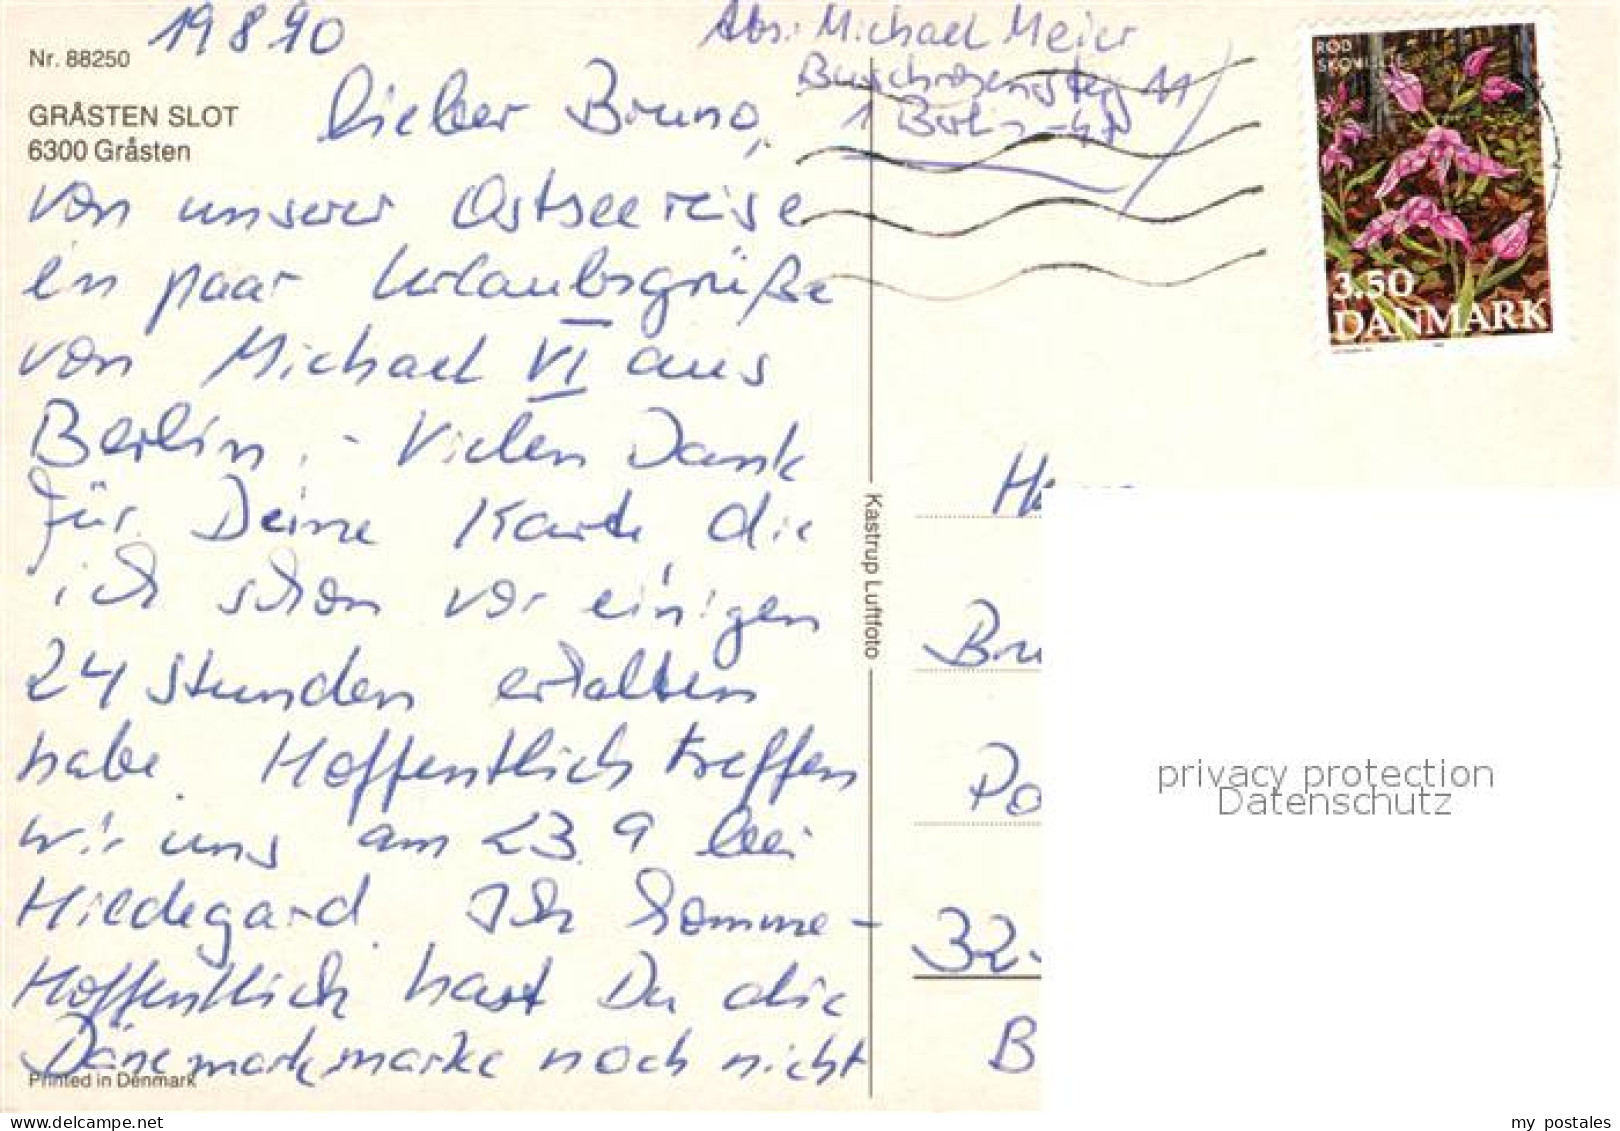 19 8 90
Nr. 88250
GRÅSTEN SLOT
6300 Gråsten
Abs.: Michael Meier
Buschrosensteg 11
1 Berlin-47
RØD
SKOVLILIE
3.50
DANMARK
Lieber Bruno,
von unserer Ostseereise
ein paar Urlaubsgrüße
von Michael VI aus
Berlin. - Vielen Dank
für Deine Karte die
ich schon vor einigen
24 Stunden erhalten
habe. Hoffentlich treffen
wir uns am 23.9 bei
Hildegard. Ich komme -
Hoffentlich hast Du die
Dänemarkmarke noch nicht
Printed in Denmark
Kastrup Luftfoto
Bru
Po
32-
B
privacy protection
Datenschutz
my postales